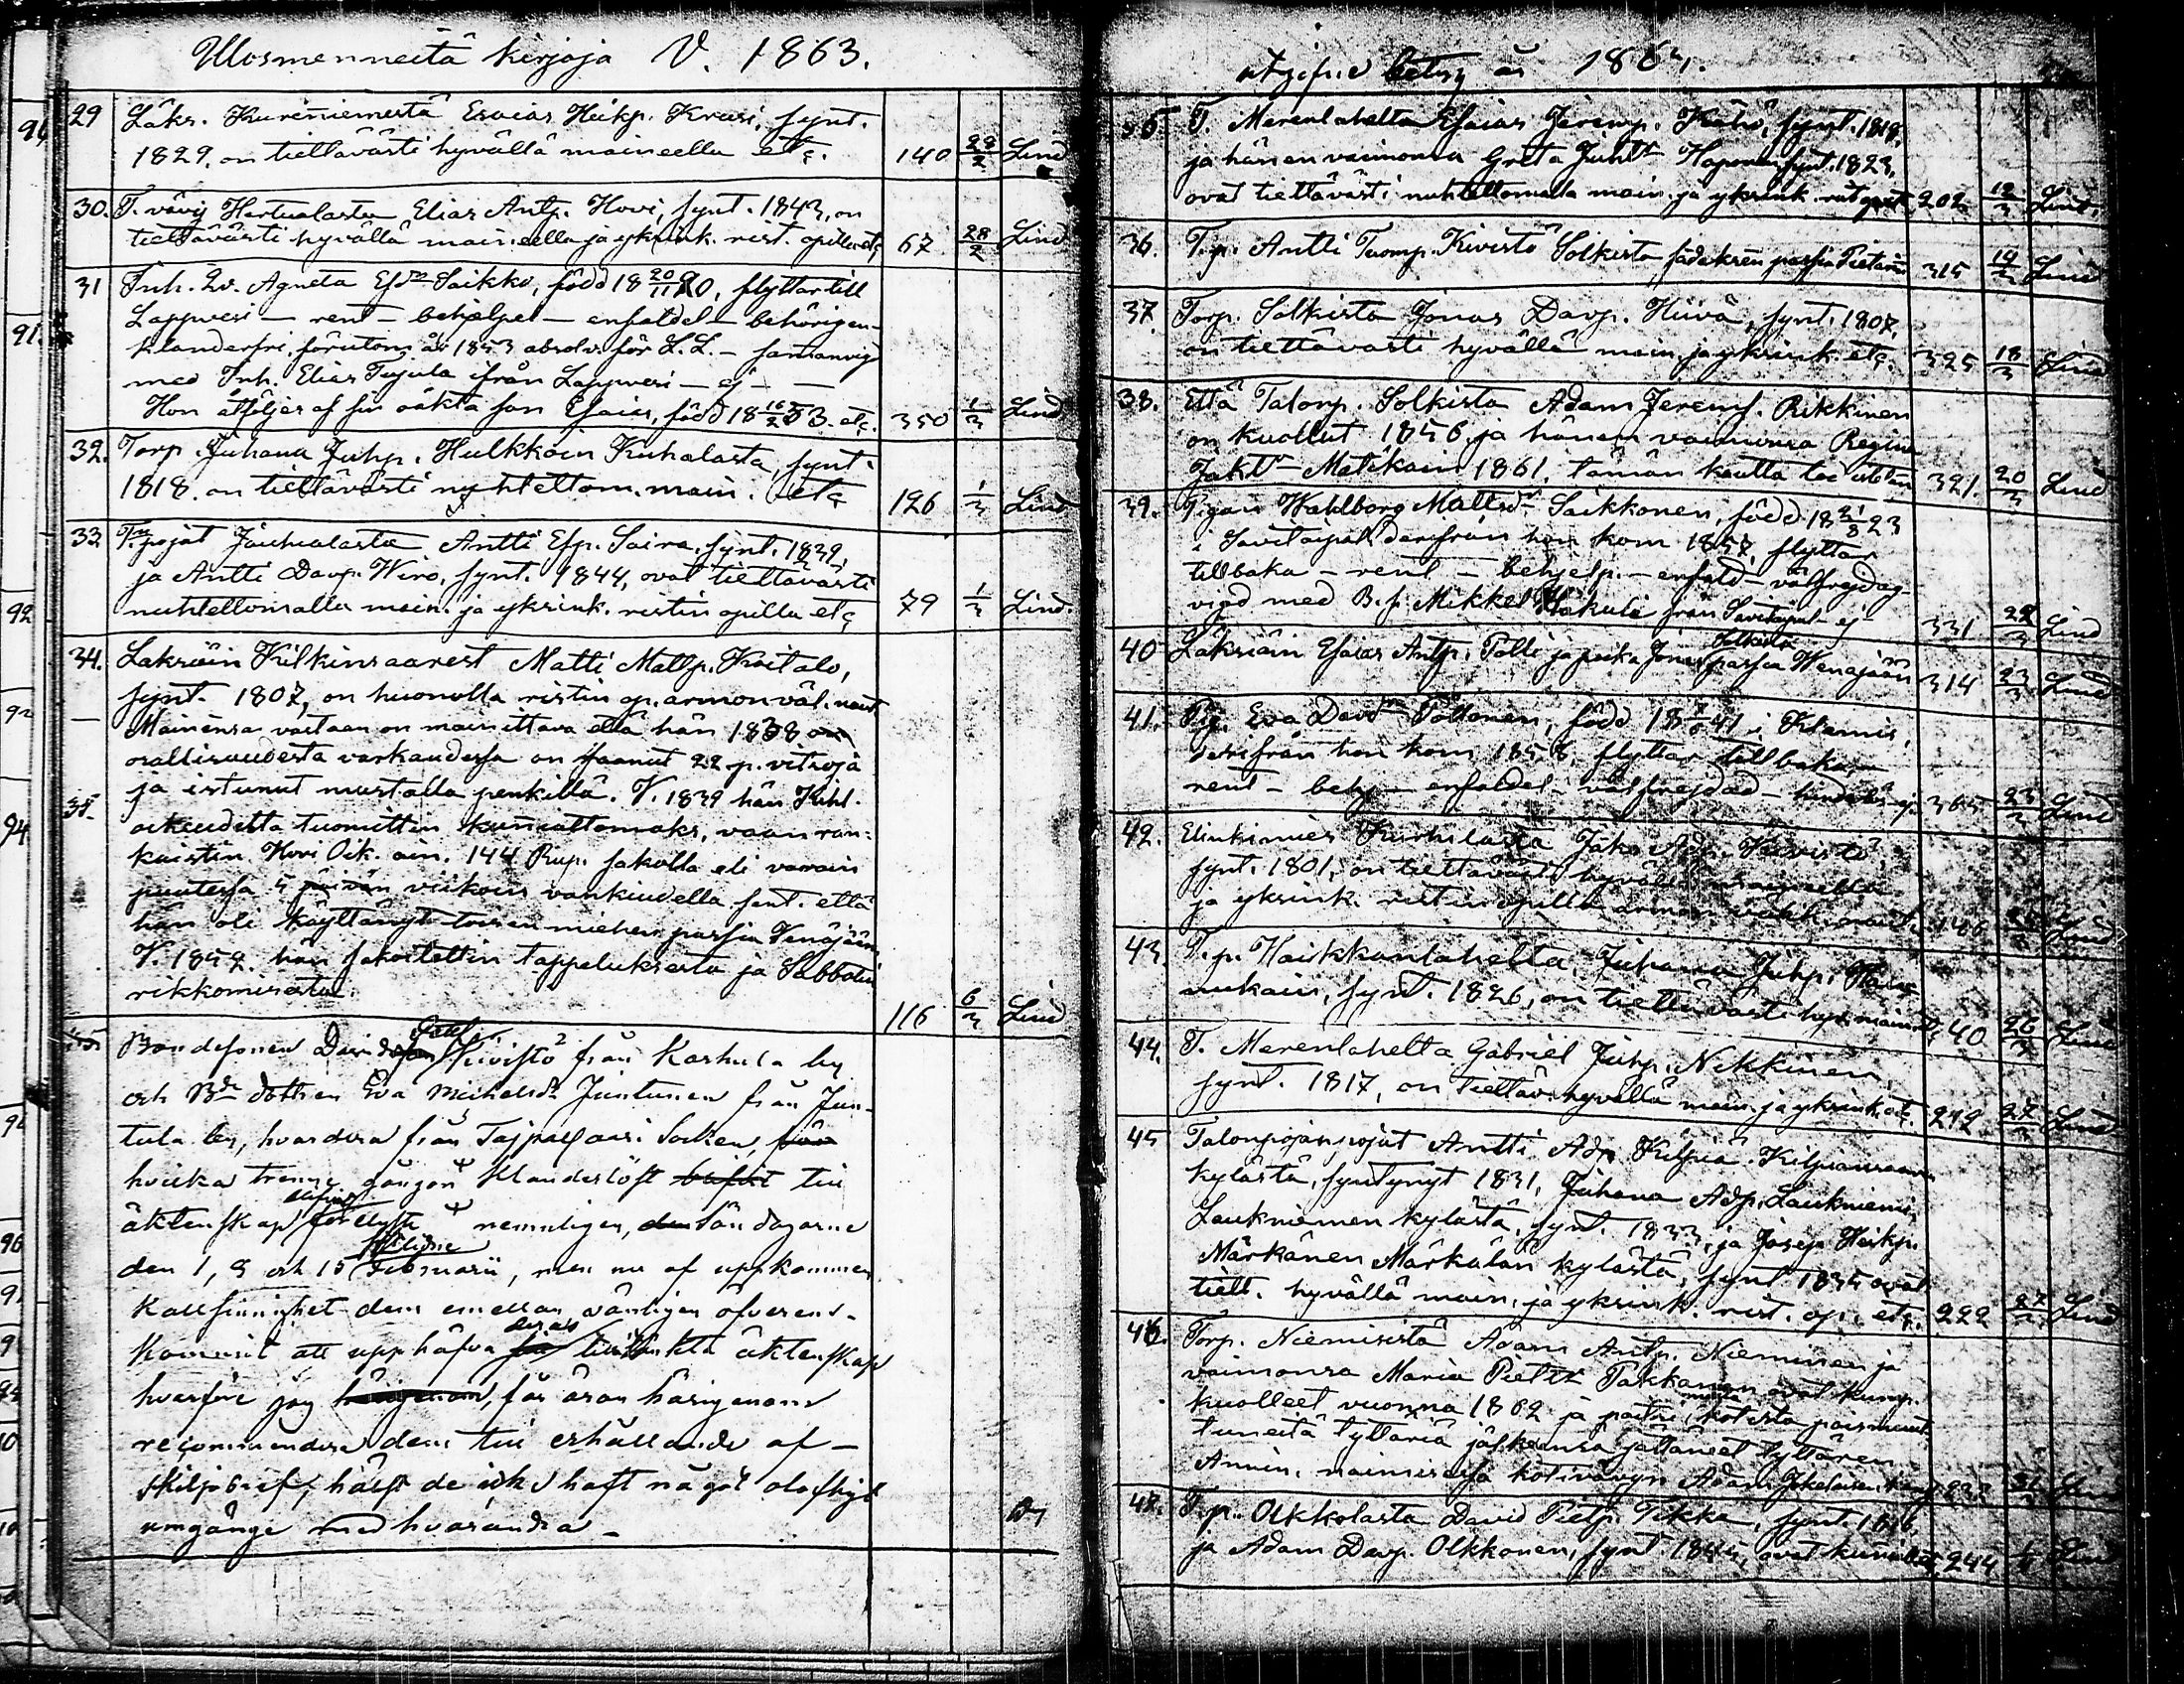 Ulosmenneitä kirjoja V. 1863.
29 Läks. Kureniemestä Esaias Heikp. Kruusi, synt.
1829, on tiettävästi hyvällä maineella etc. 140 28/2 Lind
30. T. vävy Hertualasta Elias Antp. Hovi, synt. 1843, on
tiettävästi hyvällä maineella ja yksink. rist. opilla etc 67 28/2 Lind
31 Inh. Agneta Esdr Saikko, född 18 20/11 20, flyttar till
Lappvesi — rent — behjelpel — enfaldel — behörigen
klanderfri, förutom år 1853 absolv. för L. L. —
med Inh. Elias Tujula ifrån Lappvesi — ej —
Hon åtföljes af sin oäkta son Esaias, född 18 16/2 53. etc. 350 1/3 Lind
32. Torp. Juhana Juhp. Hulkkoin Kuhalasta, synt.
1818. on tiettävästi nuhtettom. main. etc 126 1/3 Lind
33. T. pojat Jäuhialasta Antti Esp. Saira, synt. 1839,
ja Antti Davp. Wiro, synt. 1844, ovat tiettävästi
nuhtettomalla main. ja yksink. ristin opilla etc 79 1/3 Lind.
34. Läksiäin Kilkinsaarest Matti Mattp. Koitalo,
synt. 1807, on huonolla ristin op. armonväl. naut
Mainensa vastaan on mainittava että hän 1838
osallisuudesta varkaudessa on saanut 22 p. vitsoja
ja istunut mustalla penkillä. V. 1839 hän Kihl.
oikeudelta tuomittiin kunniattomaks, vaan ran-
kaistiin Hovi Oik. ain. 144 Rup. sakolla eli varain
puutessa 5 päivän viikoin vankiudella sent. että
hän oli käyttänyt toisen miehen passia Venäjään,
V. 1852. hän sakoitettiin tappeluksesta ja Sabbatin
rikkomisesta. 116 6/3 Lind
35 Bondesonen David Kivistö från Karhula by
och Bde dottren Eva Michelsdr Juntunen från Jun-
tula by, hvardera från Tajpalsaari Socken,
hvilka trenne gångor klanderlöst till
äktenskap nemnligen, Söndagarne
den 1, 8 och 15 Februarii, men nu af uppkommen
kallsinnighet dem emellan vänligen öfverens-
kommit att upphäfva deras tilltänkta äktenskap
hvarföre jag får äran härigenom
recommendera dem till erhållande af
skiljobref, hälst de icke haft något olofligt
umgänge med hvarandra —
utgifne betyg år 1863.
35. T. Merenlahelta Esaias Jeremp. Kärki, synt. 1818,
ja hänen vaimonsa Greta Juhtr Haponen synt. 1823,
ovat tiettävästi nuhtettomalla main. ja yksink. 202 12/3 Lind.
36. T. p. Antti Tuomp. Kivistö Solkista passia Pietariin 315 14/3 Lind
37. Torp. Solkista Jonas Davp. Hüvä, synt. 1807,
on tiettävästi hyvällä main. ja yksink. etc. 325 18/3 Lind
38. Että Talonp. Solkista Adam Jeremp. Rikkinen
on kuollut 1856, ja hänen vaimonsa Regina
Jaktr Matikain 1861, tämän kautta todistetaan 321. 20/3 Lind
39. Pigan Wahlborg Mattsdr Saikkonen, född 18 31/8 23
i Savitaipal derifrån hon kom 1857, flyttar
tillbaka — rent — behjelp. — enfald — välfrejdad
vigd med B. s. Mikkel från Savitaipal — ej 331 22/3 Lind
40 Läksiäin Esaias Antp. Polli ja poika Jonas Solkista passia Wenäjään 314 23/3 Lind
41. Pig. Eva Davdr Töttönen, född i Klemis,
derifrån hon kom 1858, flyttar tillbaka —
rent — behj — enfaldel — välfrejdad — hinderlös ej 365 23/3 Lind
42. Elinkimies Kurhilasta Jako Adp. Kivistö,
synt. 1801, on tiettävästi hyvällä maineella
ja yksink. ristin opilla armon välik. naut. 186 Lind
43. T. p. Haikkanlahelta, Juhana Juhp.
nukain, synt. 1826, on tiettävästi hyv. main. 40 26/3 Lind
44. T. Merenlahelta Gabriel Juhp. Nikkinen,
synt. 1817, on tiettäv. hyvällä main. ja yksink. etc. 212 27/3 Lind
45 Talonpojan pojat Antti Adp. Kilpiä Kilpiansaaren
kylästä, syntynyt 1831, Juhana Adp. Laukniemi,
Laukniemen kylästä, synt. 1833, ja Josep Heikp.
Märkänen Märkälän kylästä, synt 1835 ovat
tiett. hyvällä main. ja yksink. rist. op. etc. 222 27/3 Lind
46. Torp. Niemisistä Adam Antp. Nieminen ja
vaimonsa Maria Piettr Pakkanen ovat kump.
kuolleet vuonna 1862 ja paitsi muita kotosta poismuut-
tuneita tyttäriä jälkeensä jättäneet tyttären
Annin, naimisessa kotivävyn Adam 232 31/3 Lind
48. T. p. Olkkolasta David Pietp. Tikka, synt. 1816,
ja Adam Davp. Olkkonen, synt 1845, ovat 244 Lind